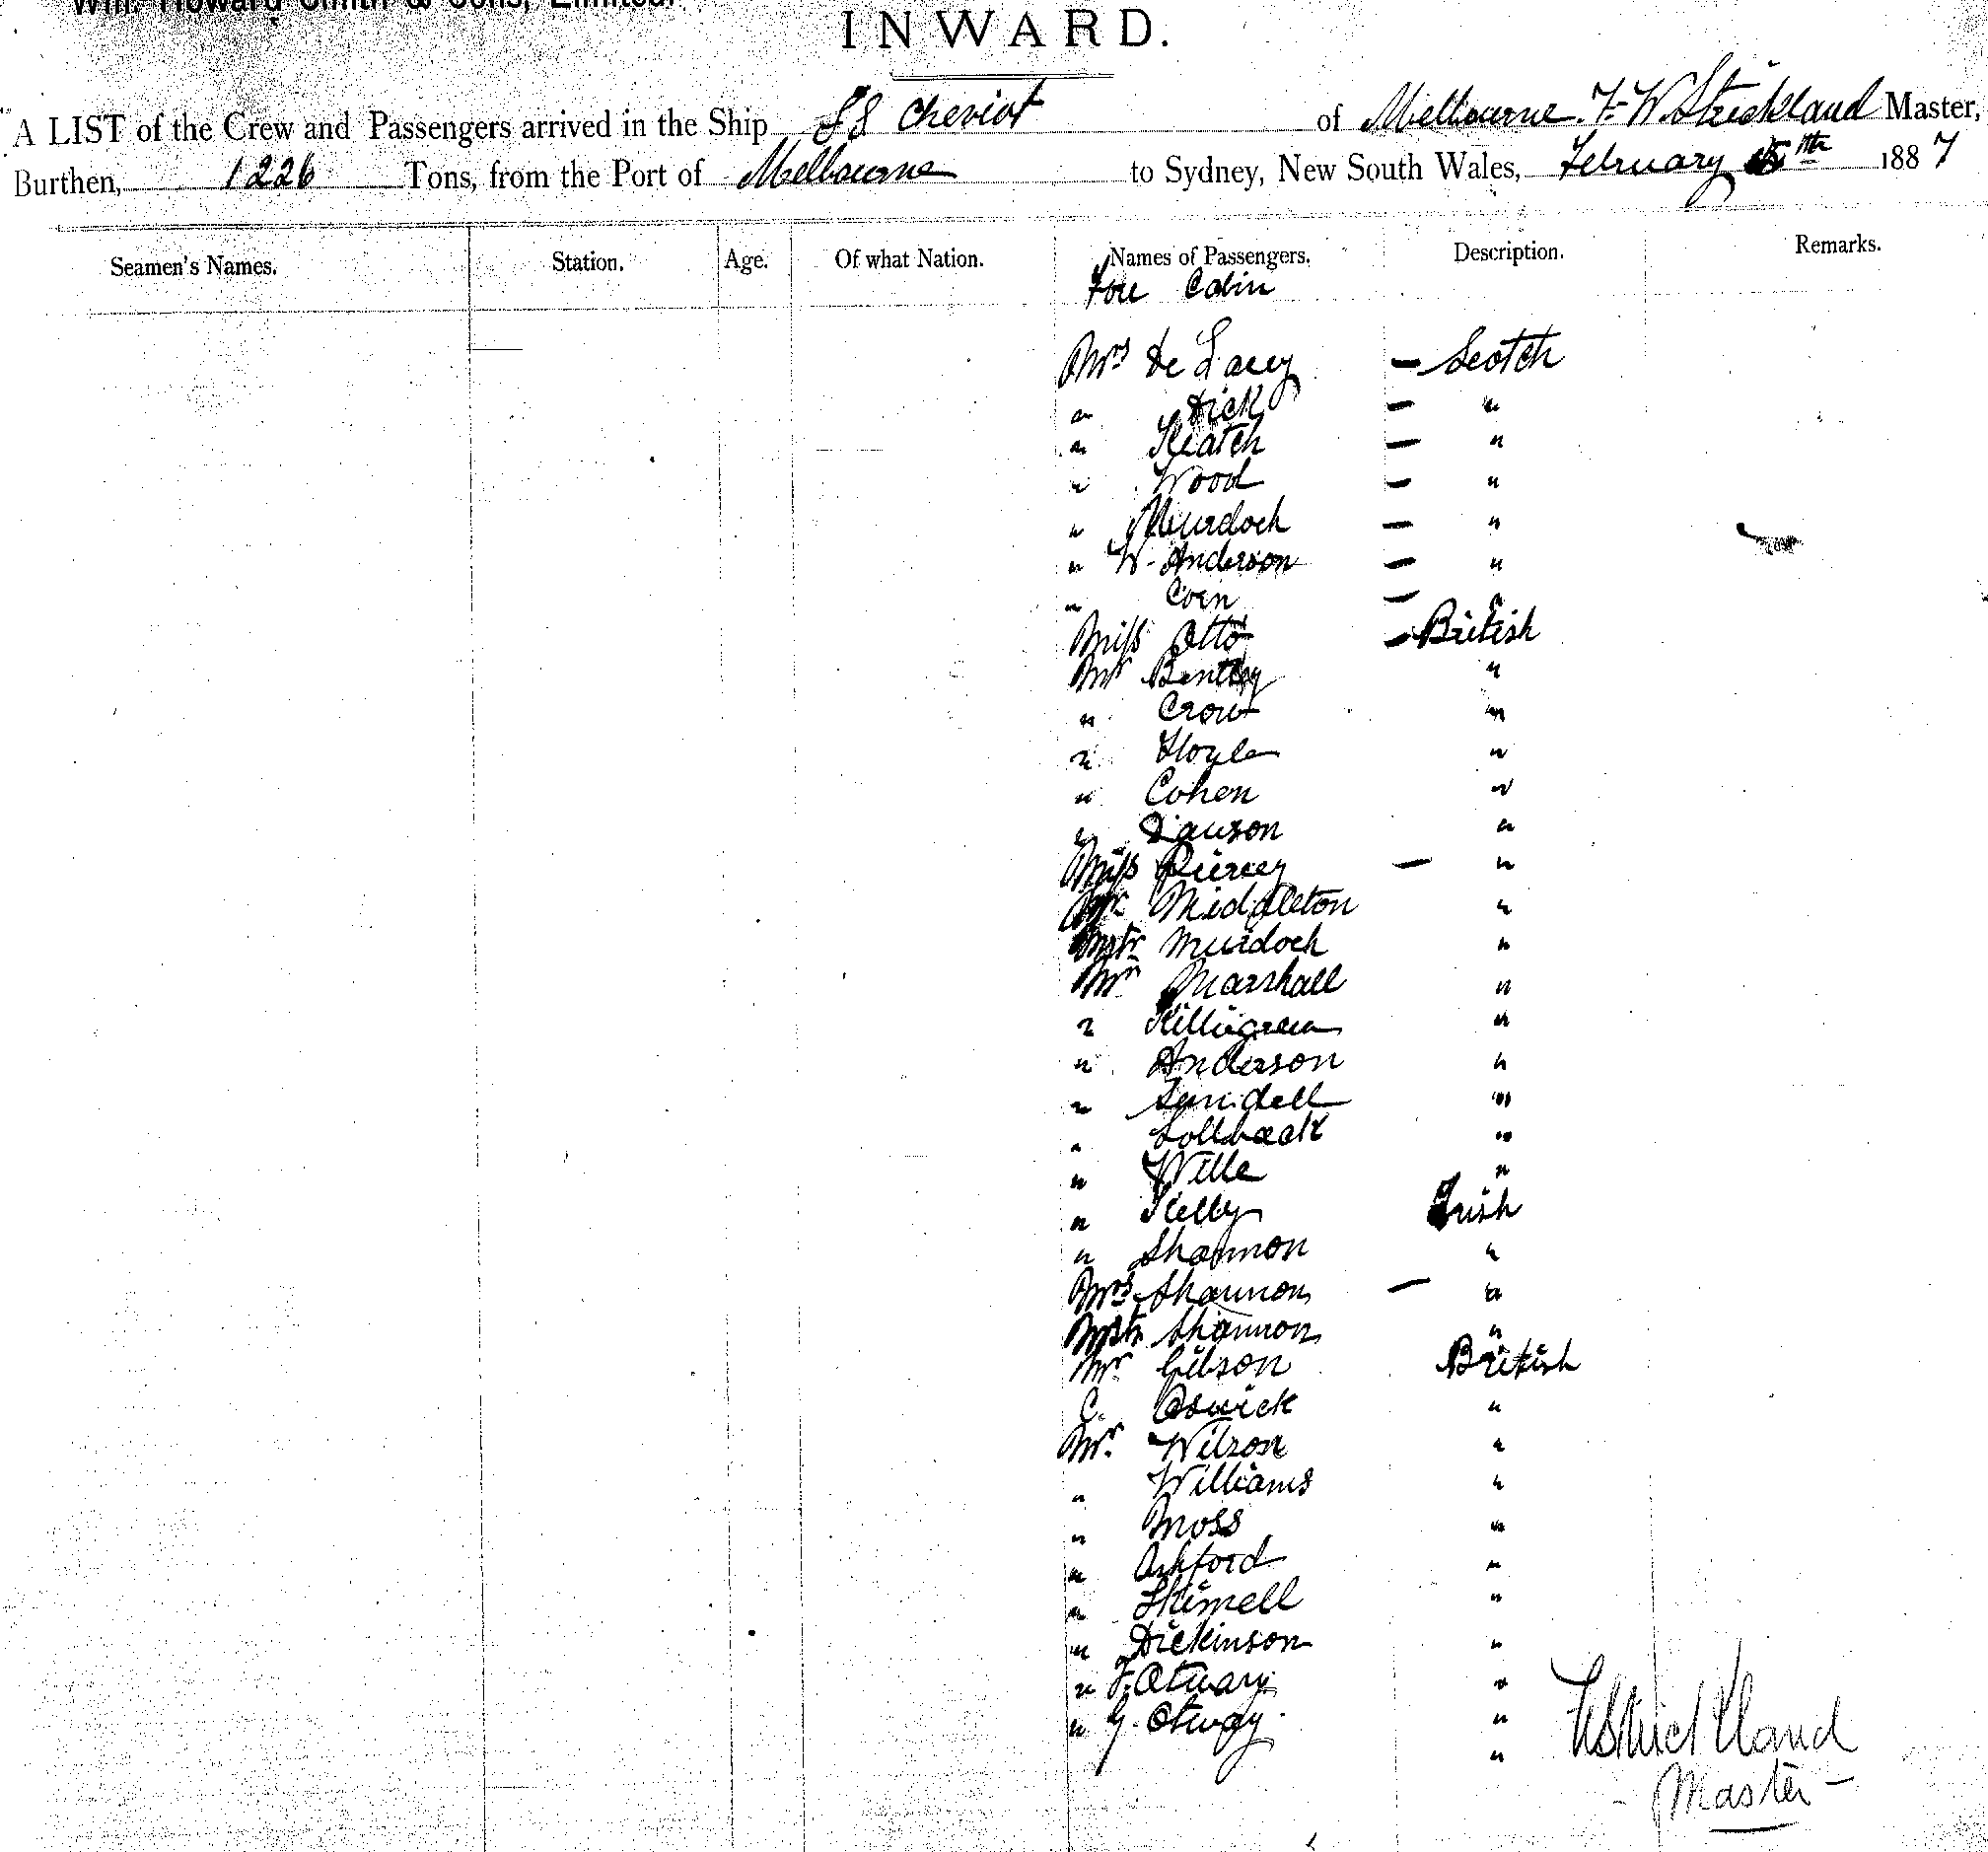 Wm. Howard Smith & Sons, Limited.
INWARD.
A LIST of the Crew and Passengers arrived in the Ship SS Cheviot of Melbourne. F. W. Strickland Master,
Burthen, 1226 Tons, from the Port of Melbourne to Sydney, New South Wales, February 5th 1887
Seamen's Names. Station. Age. Of what Nation. Names of Passengers. Description. Remarks.
Fore Cabin
Mrs De Lacey — Scotch
" Dick — "
" Keatch — "
" Wood — "
" Murdoch — "
" W. Anderson — "
" Coen — "
Miss Otto — British
Mr Bentley "
" Crow "
" Hoyle "
" Cohen "
" Dawson "
Miss Piercey — "
Mr Middleton "
Mstr Murdoch "
Mr Marshall "
" "
" Anderson "
" "
" "
" Wille "
" Kelly Irish
" Shannon "
Mrs Shannon — "
Mstr Shannon "
Mr Gibson British
C. Oswick "
Mr Wilson "
" Williams "
" Moss "
" Ashford "
" "
" Dickinson "
" F. "
" G. Otway "
"
Strickland
- Master -